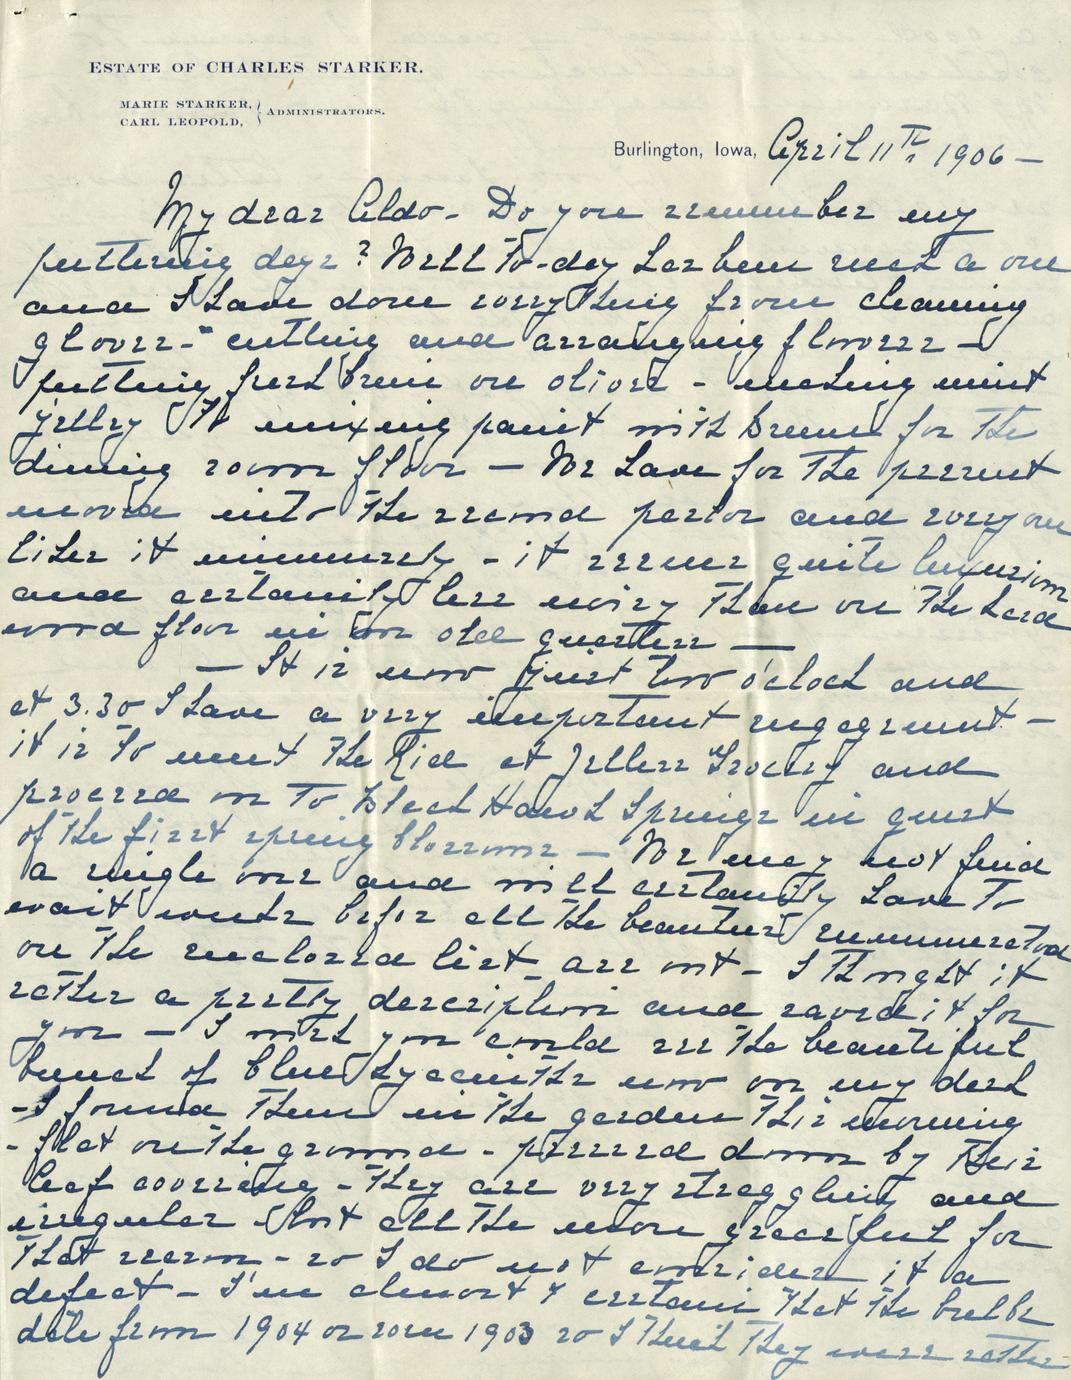 ESTATE OF CHARLES STARKER.
MARIE STARKER,
CARL LEOPOLD,
ADMINISTRATORS.
Burlington, Iowa, April 11th 1906 -
My dear Aldo - Do you remember my
puttering days? Well to-day has been such a one
and I have done everything from cleaning
gloves - cutting and arranging flowers -
putting fresh brine on olives - making mint
jelly to mixing paint with Bremer for the
dining room floor - We have for the present
moved into the second parlor and every one
likes it immensely - it seems quite luxurious
and certainly less noisy than on the hard
wood floor in our old quarters -
- It is now just two o'clock and
at 3.30 I have a very important engagement -
it is to meet the Kid at Jellers Grocery and
proceed on to Black Hawk Springs in quest
of the first spring blossoms - We may not find
a single one and will certainly have to
wait weeks before all the beauties enumerated
on the enclosed list are out - I thought it
rather a pretty description and saved it for
you - I wish you could see the beautiful
bunch of blue hyacinths now on my desk
- I found them in the garden this morning
- flat on the ground - pressed down by their
leaf covering - they are very straggling and
irregular but all the more graceful for
that reason - so I do not consider it a
defect - I'm almost certain that the bulbs
date from 1904 or even 1903 so I think they were rather